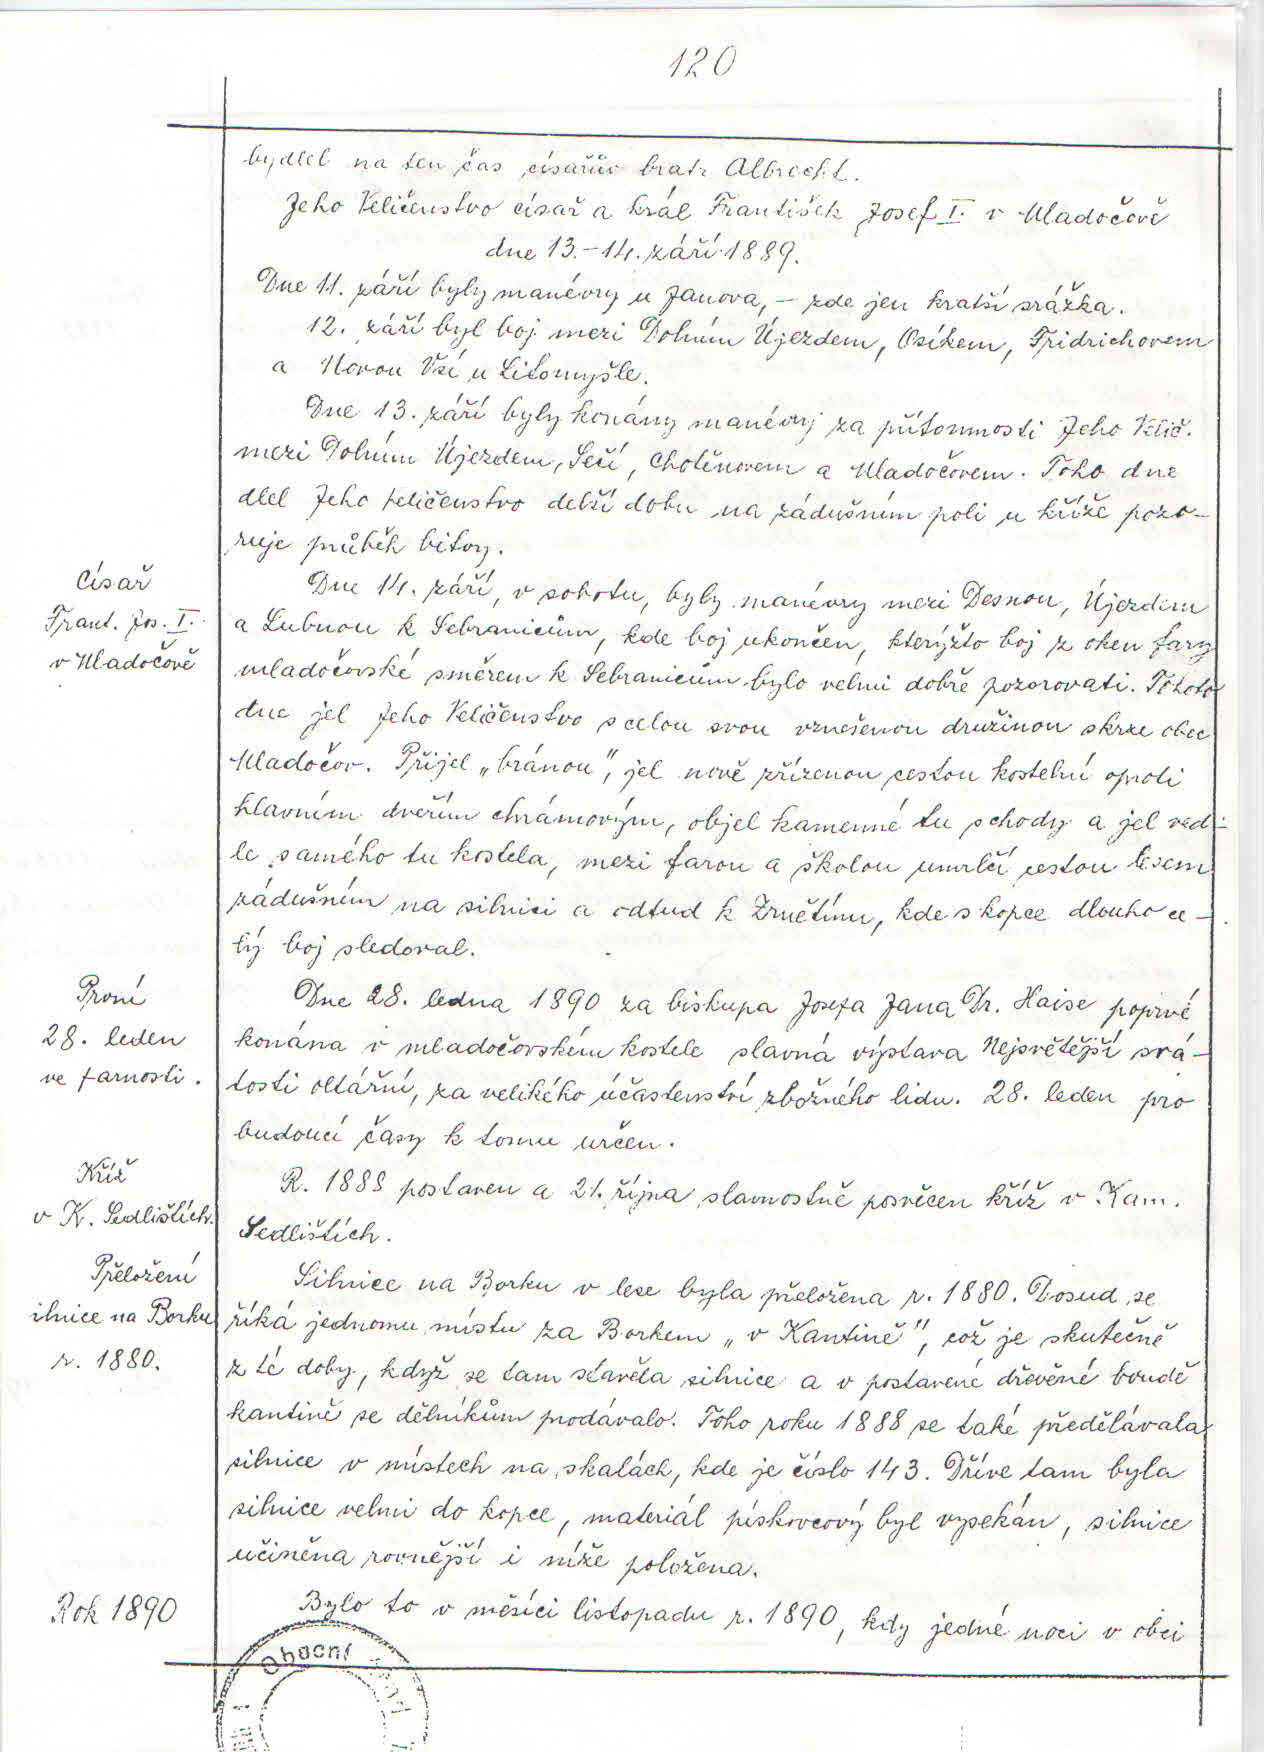 120
bydlel na ten čas císařův bratr Albrecht.
Jeho Veličenstvo císař a král František Josef I. v Mladočově
dne 13.-14. září 1889.
Dne 11. září byly manévry u Janova, - zde jen kratší srážka.
12. září byl boj mezi Dolním Újezdem, Osíkem, Fridrichovem
a Novou Vsí u Litomyšle.
Dne 13. září byly konány manévry za přítomnosti Jeho Velič.
mezi Dolním Újezdem, Seší, Chotěnovem a Mladočovem. Toho dne
dlel Jeho veličenstvo delší dobu na zádušním poli u kříže pozo-
ruje průběh bitvy.
Císař
Frant. Jos. I.
v Mladočově
Dne 14. září, v sobotu, byly manévry mezi Desnou, Újezdem
a Lubnou k Sebranicům, kde boj ukončen, kterýžto boj z oken fary
mladočovské směrem k Sebranicům bylo velmi dobře pozorovati. Tohoto
dne jel Jeho Veličenstvo s celou svou vznešenou družinou skrze obec
Mladočov. Přijel „bránou", jel nově zřízenou cestou kostelní oproti
hlavním dveřím chrámovým, objel kamenné tu schody a jel ved-
le samého tu kostela, mezi farou a školou umrlčí cestou lesem
zádušním na silnici a odtud k Zrnětínu, kde s kopce dlouho ce-
lý boj sledoval.
První
28. leden
ve farnosti.
Dne 28. ledna 1890 za biskupa Josefa Jana Dr. Haise poprvé
konána v mladočovském kostele slavná výstava Nejsvětější svá-
tosti oltářní, za velikého účastenství zbožného lidu. 28. leden pro
budoucí časy k tomu určen.
Kříž
v K. Sedlištích.
R. 1888 postaven a 21. října slavnostně posvěcen kříž v Kam.
Sedlištích.
Přeložení
ilnice na Borku
r. 1880.
Silnice na Borku v lese byla přeložena r. 1880. Dosud se
říká jednomu místu za Borkem „v Kantině", což je skutečně
z té doby, když se tam stavěla silnice a v postavené dřevěné boudě
kantině se dělníkům prodávalo. Toho roku 1888 se také předělávala
silnice v místech na skalách, kde je číslo 143. Dříve tam byla
silnice velmi do kopce, materiál pískovcový byl vysekán, silnice
učiněna rovnější i níže položena.
Rok 1890
Bylo to v měsíci listopadu r. 1890, kdy jedné noci v obci
Obecní